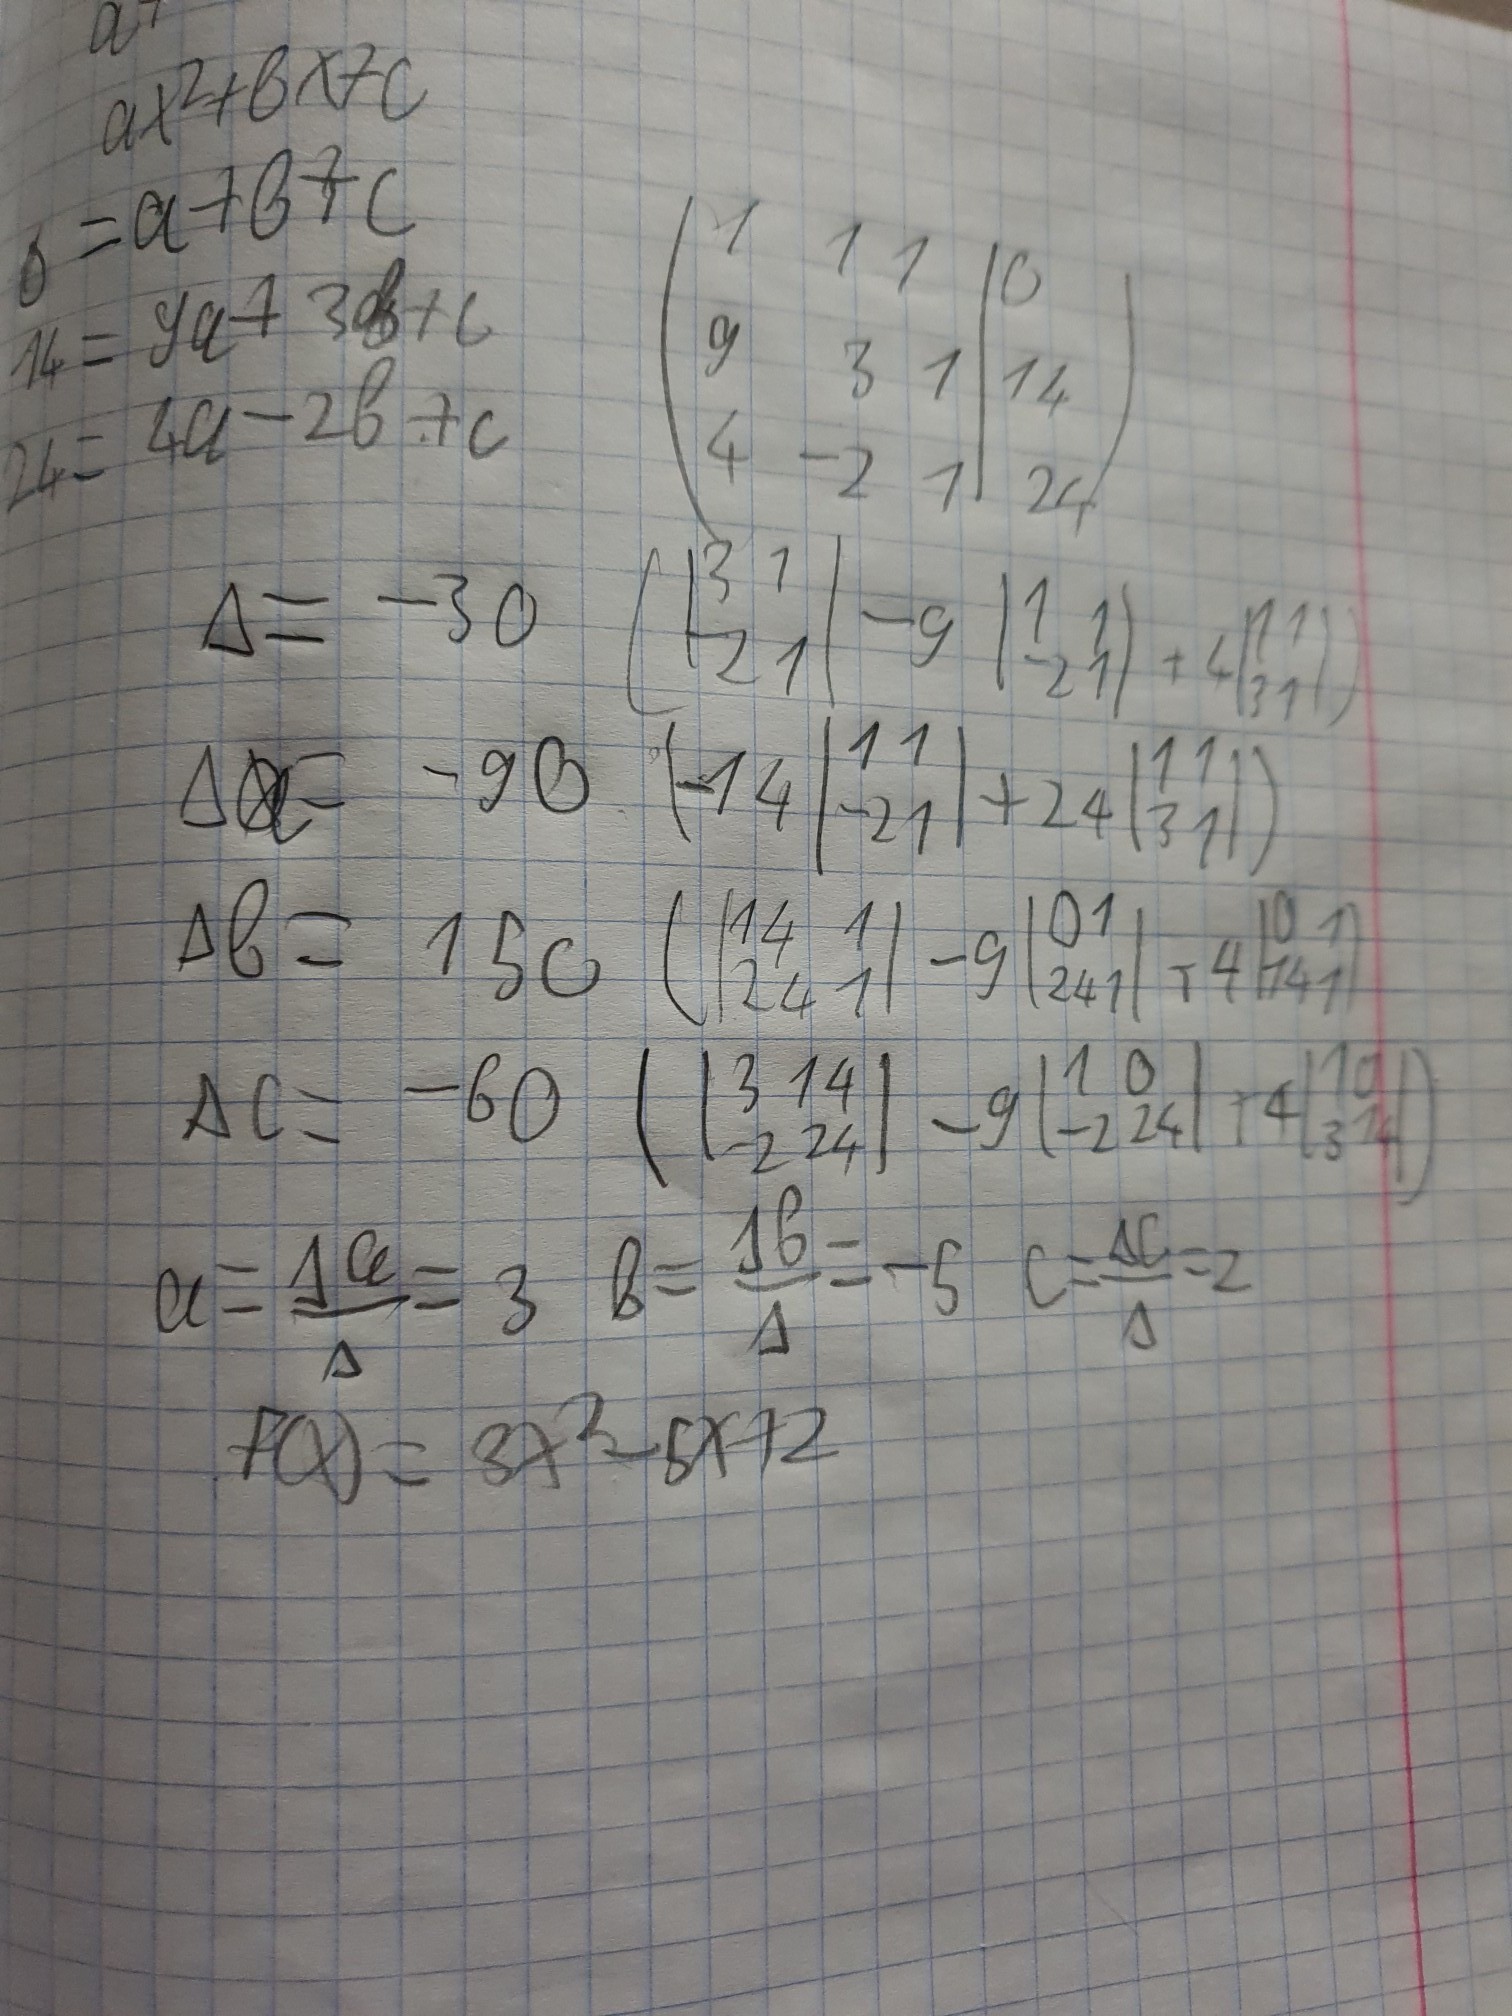 ax²+bx+c
0 = a+b+c
14 = 9a+3b+c
24 = 4a-2b+c
1 1 1 | 0
9 3 1 | 14
4 -2 1 | 24
Δ = -30 (|3 1; -2 1| -9 |1 1; -2 1| +4 |1 1; 3 1|)
Δa = -90 (-14 |1 1; -2 1| +24 |1 1; 3 1|)
Δb = 150 (|14 1; 24 1| -9 |0 1; 24 1| +4 |0 1; 14 1|)
Δc = -60 (|3 14; -2 24| -9 |1 0; -2 24| +4 |1 0; 3 14|)
a = Δa/Δ = 3 b = Δb/Δ = -5 c = Δc/Δ = 2
f(x) = 3x²-5x+2